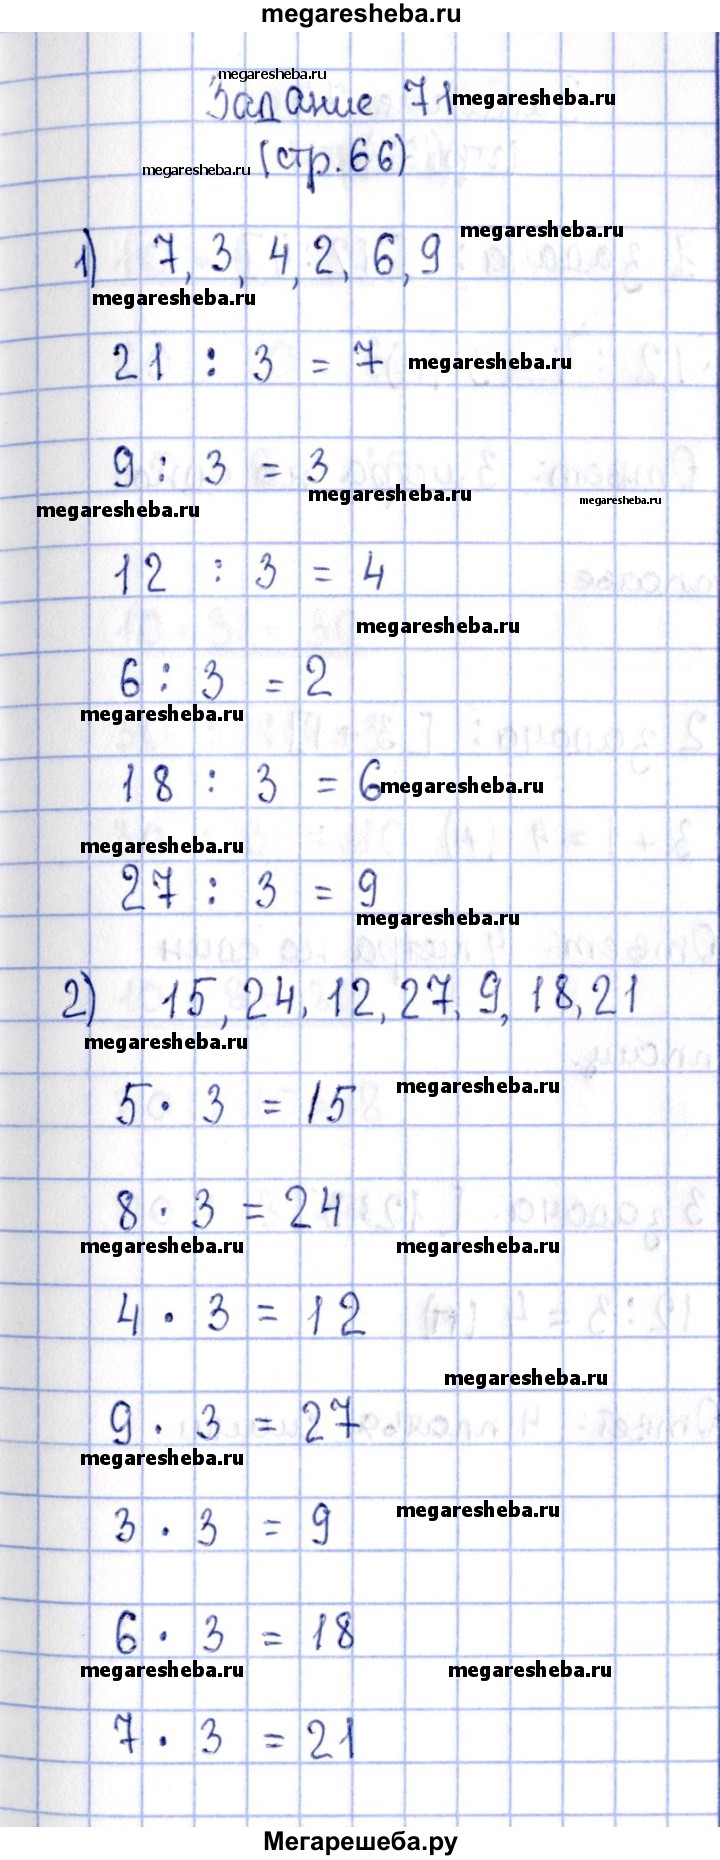 megaresheba.ru
megaresheba.ru
Задание 71 megaresheba.ru
megaresheba.ru (стр.66)
megaresheba.ru
1) 7, 3, 4, 2, 6, 9
megaresheba.ru
21 : 3 = 7 megaresheba.ru
9 : 3 = 3
megaresheba.ru megaresheba.ru
megaresheba.ru
12 : 3 = 4
megaresheba.ru
6 : 3 = 2
megaresheba.ru
18 : 3 = 6 megaresheba.ru
megaresheba.ru
27 : 3 = 9
megaresheba.ru
2) 15, 24, 12, 27, 9, 18, 21
megaresheba.ru
megaresheba.ru
5 · 3 = 15
8 · 3 = 24
megaresheba.ru megaresheba.ru
4 · 3 = 12
megaresheba.ru
9 · 3 = 27
megaresheba.ru
megaresheba.ru
3 · 3 = 9
6 · 3 = 18
megaresheba.ru megaresheba.ru
7 · 3 = 21
Мегарешеба.ру